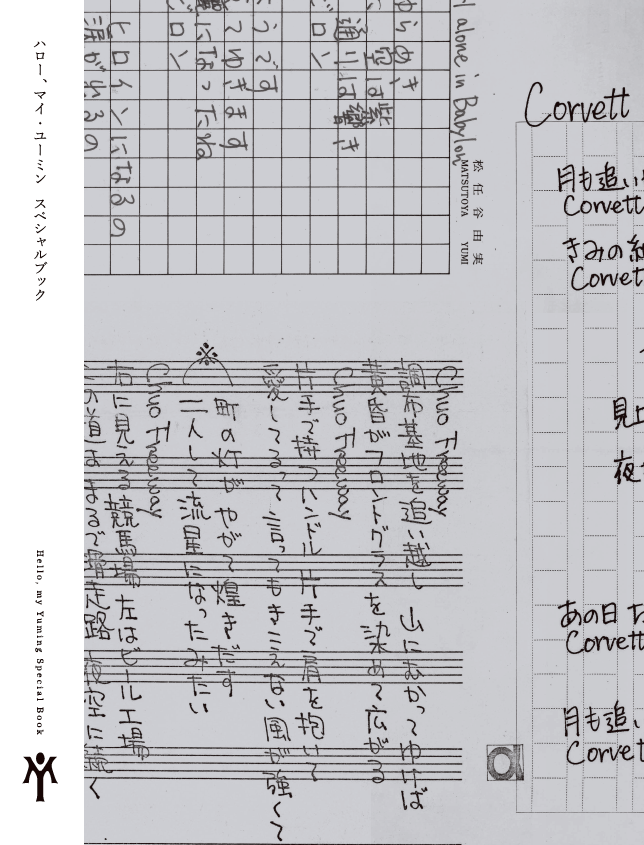 ハロー、マイ・ユーミン スペシャルブック
Hello, my Yuming Special Book
alone in Babylon
松任谷由実
MATSUTOYA YUMI
らめき
空は紫
通りは響き
ロン
うです
てゆきます
になったね
ロン
ヒロインになるの
涙がかれるの
Chuo Freeway
調布基地を追い越し 山にむかってゆけば
黄昏がフロントグラスを染めて広がる
Chuo Freeway
片手で持つハンドル 片手で肩を抱いて
愛してるって言ってもきこえない 風が強くて
※
町の灯がやがて煌きだす
二人して流星になったみたい
Chuo Freeway
右に見える競馬場 左はビール工場
この道はまるで滑走路 夜空に続く
Corvett
月も追い
Corvett
きみの
Corvet
見上
夜
あの日
Corvett
月も追い
Corvet